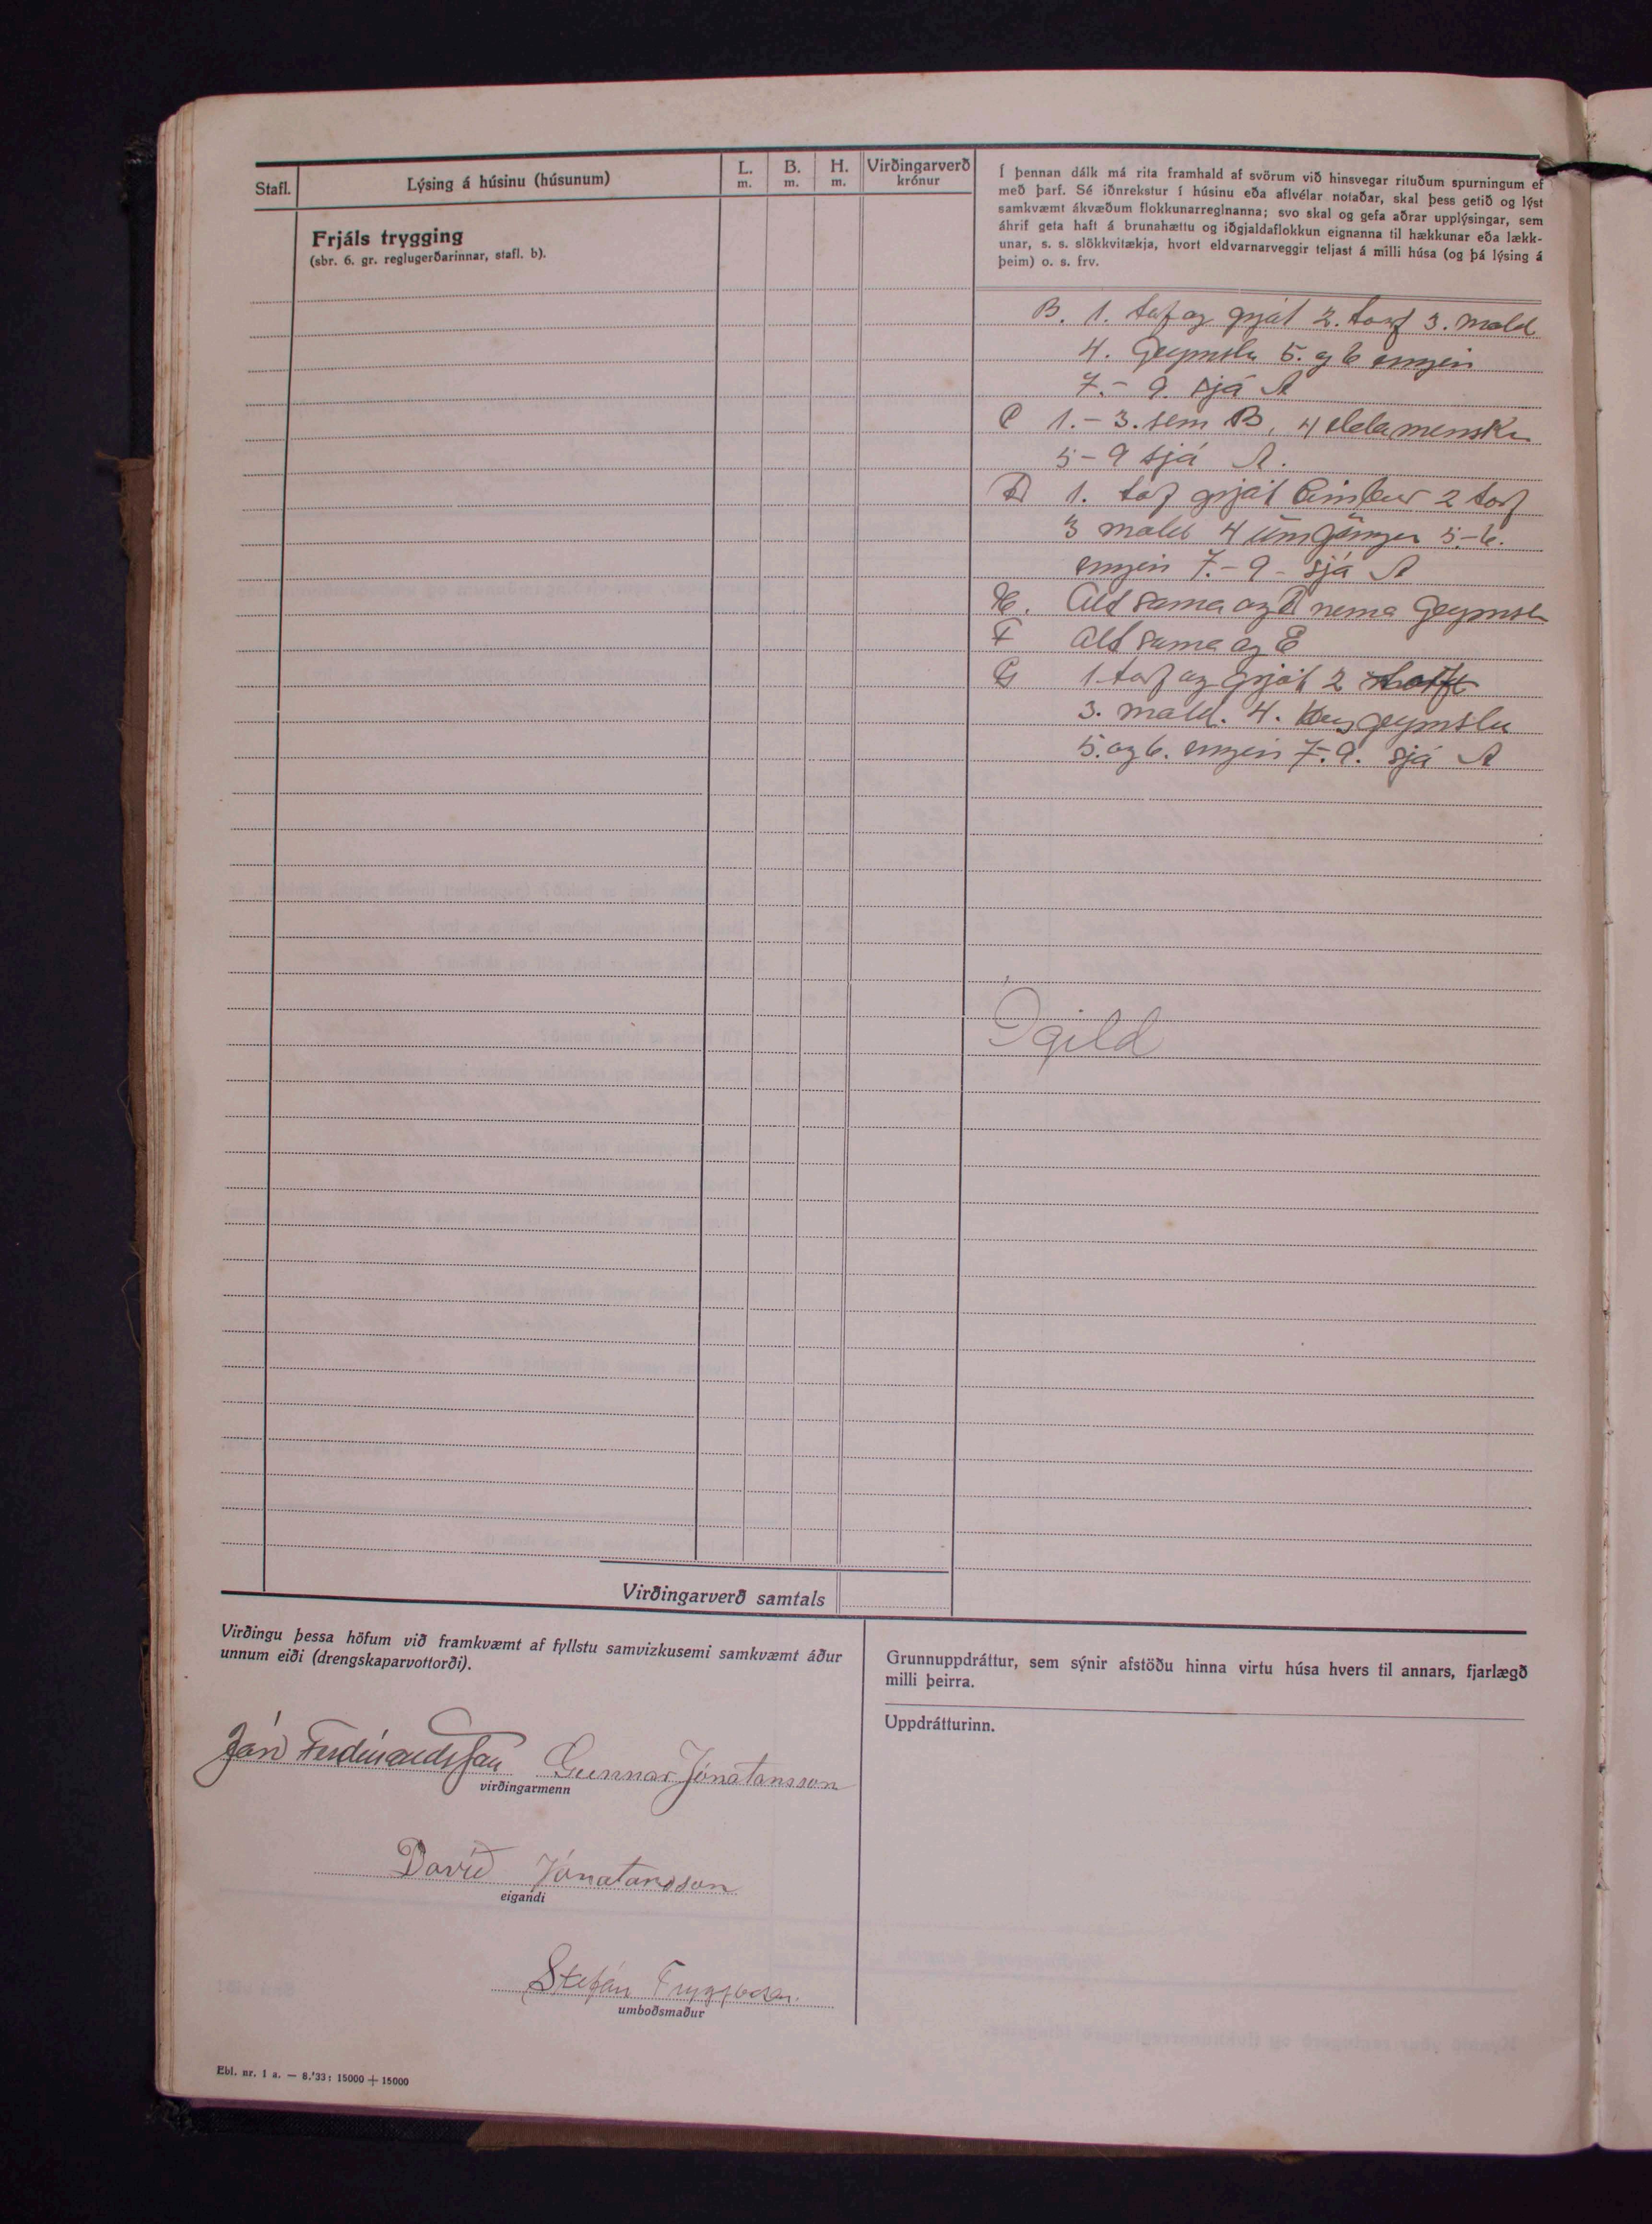 Stafl.
Lýsing á húsinu (húsunum)
L. m.
B. m.
H. m.
Virðingarverð krónur
Frjáls trygging
(sbr. 6. gr. reglugerðarinnar, stafl. b).
Í þennan dálk má rita framhald af svörum við hinsvegar rituðum spurningum ef
með þarf. Sé iðnrekstur í húsinu eða aflvélar notaðar, skal þess getið og lýst
samkvæmt ákvæðum flokkunarreglnanna; svo skal og gefa aðrar upplýsingar, sem
áhrif geta haft á brunahættu og iðgjaldaflokkun eignanna til hækkunar eða lækk-
unar, s. s. slökkvitækja, hvort eldvarnarveggir teljast á milli húsa (og þá lýsing á
þeim) o. s. frv.
B. 1. torf og grjót 2. torf 3. mold
4. Geymslu 5. og 6 engin
7.- 9. sjá A
C 1.- 3. sem B, 4 eldamensku
5- 9 sjá A.
D 1. torf grjót timbur 2 torf
3 mold 4 umgángur 5.-6.
engin 7.- 9- sjá A
E. Alt sama og D nema Geymslu
F alt sama og E
G 1. torf og grjót 2
3. mold. 4. Heygeymslu
5. og 6. engin 7.-9. sjá A
Ógild
Virðingarverð samtals
Virðingu þessa höfum við framkvæmt af fyllstu samvizkusemi samkvæmt áður
unnum eiði (drengskaparvottorði).
Jón Ferdínandsson Gunnar Jónatansson
virðingarmenn
Davíð Jónatansson
eigandi
Stefán Tryggvason
umboðsmaður
Grunnuppdráttur, sem sýnir afstöðu hinna virtu húsa hvers til annars, fjarlægð
milli þeirra.
Uppdrátturinn.
Ebl. nr. 1 a. — 8.'33: 15000 + 15000